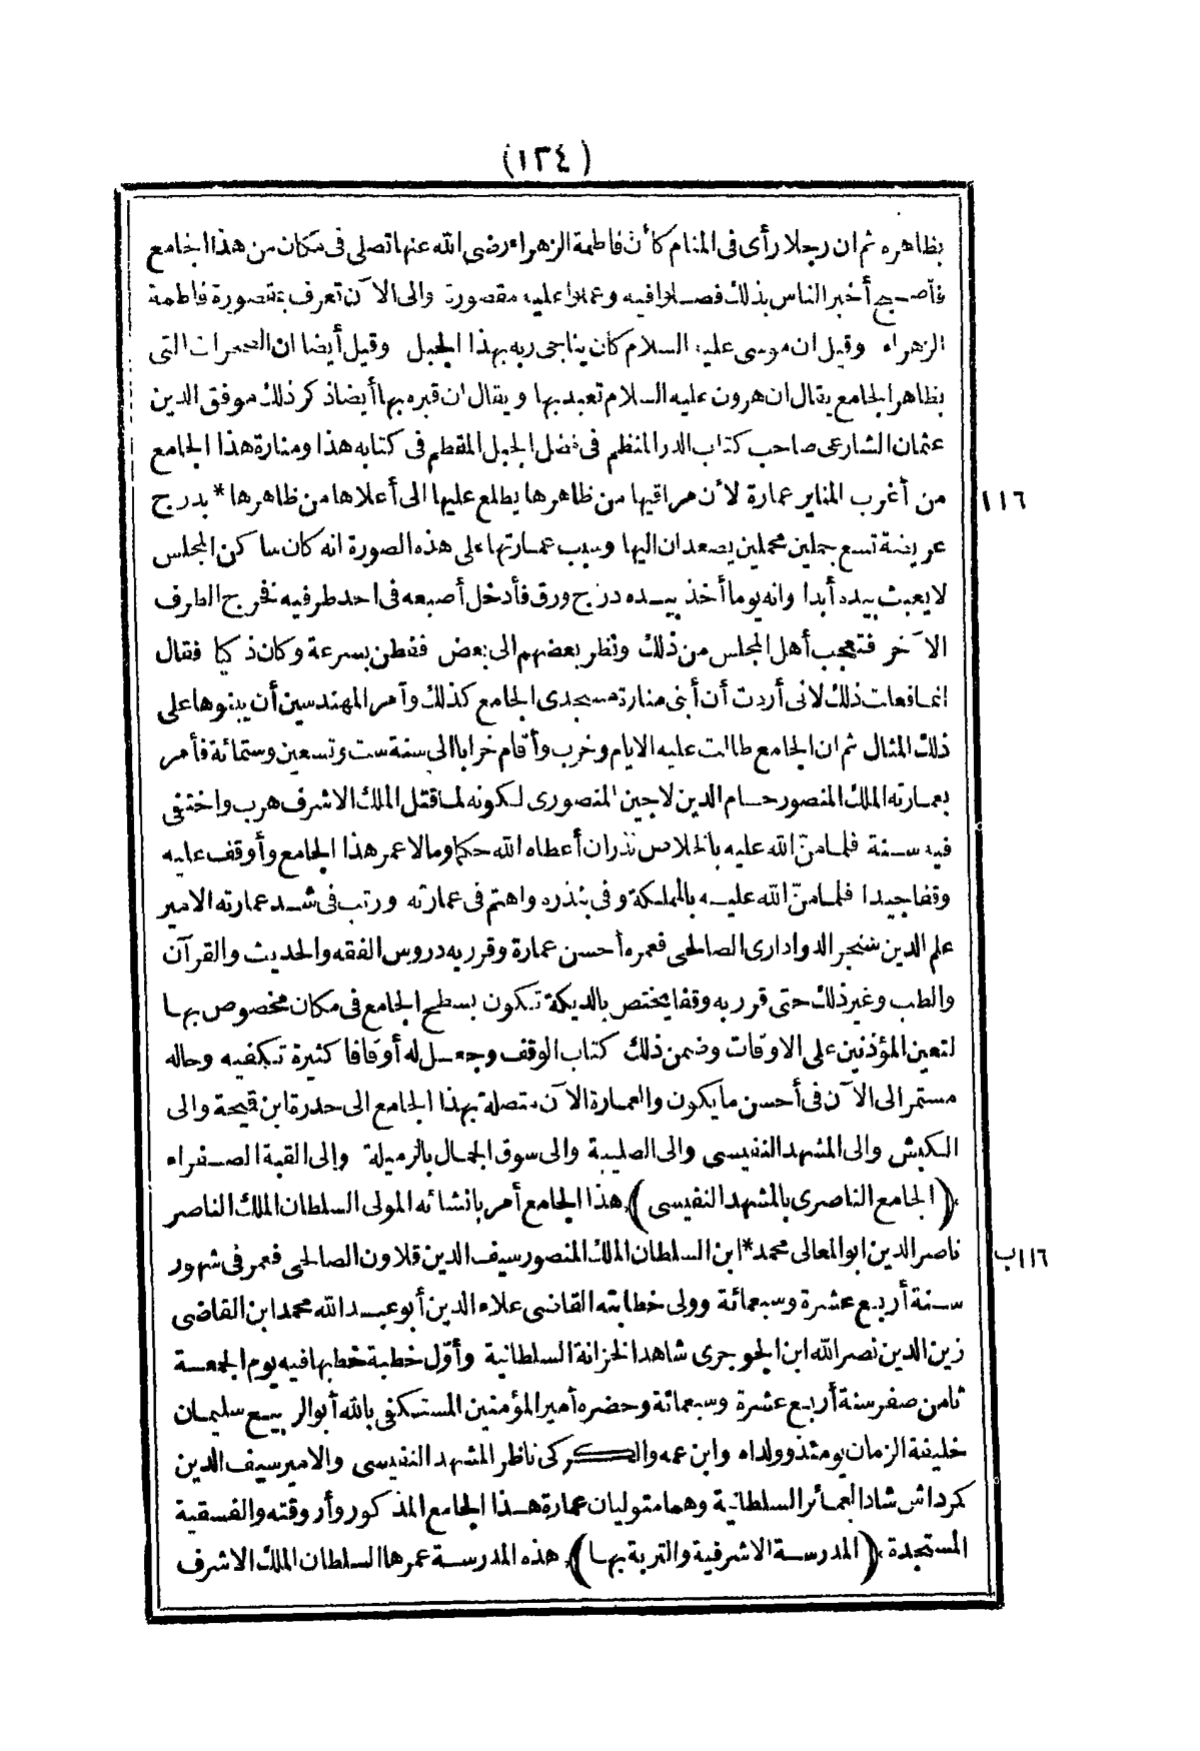 (١٢٤)
بظاهره ثم ان رجلا رأى فى المنام كأن فاطمة الزهراء رضى الله عنها تصلى فى مكان من هذا الجامع
فأصبح أخبر الناس بذلك فصلوا فيه وعملوا عليه مقصورة والى الآن تعرف بمقصورة فاطمة
الزهراء وقيل ان موسى عليه السلام كان يناجى ربه بهذا الجبل وقيل أيضا ان الحجرات التى
بظاهر الجامع يقال ان هرون عليه السلام تعبد بها ويقال ان قبره بها أيضا ذكر ذلك موفق الدين
عثمان الشارعى صاحب كتاب الدر المنظم فى فضل الجبل المقطم فى كتابه هذا ومنارة هذا الجامع
من أغرب المناير عمارة لأن مراقيها من ظاهرها يطلع عليها الى أعلاها من ظاهرها * بدرج
١١٦
عريضة تسع جملين محملين يصعدان اليها وسبب عمارتها على هذه الصورة انه كان ساكن المجلس
لا يعبث بيده أبدا وانه يوما أخذ بيده درج ورق فأدخل أصبعه فى احد طرفيه فخرج الطرف
الآخر فتعجب أهل المجلس من ذلك ونظر بعضهم الى بعض ففطن بسرعة وكان ذكيا فقال
انما فعلت ذلك لانى أردت أن أبنى منارة مسجدى الجامع كذلك وآمر المهندسين أن يبنوها على
ذلك المثال ثم ان الجامع طالت عليه الايام وخرب وأقام خرابا الى سنة ست وتسعين وستمائة فأمر
بعمارته الملك المنصور حسام الدين لاجين المنصورى لكونه لما قتل الملك الاشرف هرب واختفى
فيه سنة فلما منّ الله عليه بالخلاص نذر ان أعطاه الله حكما ومالا عمر هذا الجامع وأوقف عليه
وقفا جيدا فلما منّ الله عليه بالمملكة وفى بنذره واهتم فى عمارته ورتب فى شد عمارته الامير
علم الدين سنجر الدوادارى الصالحى فعمره أحسن عمارة وقرر به دروس الفقه والحديث والقرآن
والطب وغير ذلك حتى قرر به وقفا يختص بالديكة تكون بسطح الجامع فى مكان مخصوص بها
لتعين المؤذنين على الاوقات وضمن ذلك كتاب الوقف وجعل له أوقافا كثيرة تكفيه وحاله
مستمر الى الآن فى أحسن ما يكون والعمارة الآن متصلة بهذا الجامع الى حدرة ابن قيحة والى
الكبش والى المشهد النفيسى والى الصليبة والى سوق الجمال بالرميلة والى القبة الصفراء
(الجامع الناصرى بالمشهد النفيسى) هذا الجامع أمر بانشائه المولى السلطان الملك الناصر
ناصر الدين ابو المعالى محمد * ابن السلطان الملك المنصور سيف الدين قلاون الصالحى فعمر فى شهور
١١٦ب
سنة أربع عشرة وسبعمائة وولى خطابته القاضى علاء الدين أبو عبد الله محمد ابن القاضى
زين الدين نصر الله ابن الجوجرى شاهد الخزانة السلطانية وأوّل خطبة خطب بها فيه يوم الجمعة
ثامن صفر سنة أربع عشرة وسبعمائة وحضره أمير المؤمنين المستكفى بالله أبو الربيع سليمان
خليفة الزمان يومئذ وولداه وابن عمه والكركى ناظر المشهد النفيسى والامير سيف الدين
كرداش شاد العمائر السلطانية وهما متوليان عمارة هذا الجامع المذكور وأروقته والفسقية
المستجدة (المدرسة الاشرفية والتربة بها) هذه المدرسة عمرها السلطان الملك الاشرف